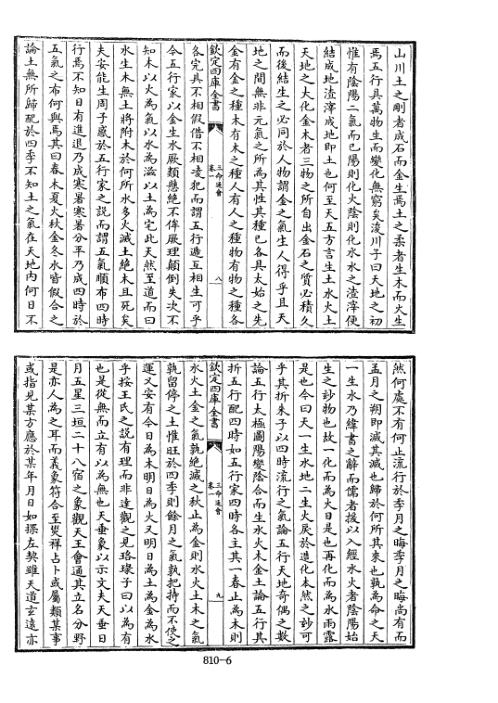 山川土之剛者成石而金生焉土之柔者生木而火生
焉五行具萬物生而變化無窮矣浚川子曰天地之初
惟有陰陽二氣而已陽則化火陰則化水水之渣滓便
結成地渣滓成地即土也何至天五方言生土水火土
天地之大化金木者三物之所自出金石之質必積久
而後結生之必同於人物謂金之氣生人得乎且天
地之間無非元氣之所為其性其種已各具太始之先
金有金之種木有木之種人有人之種物有物之種各
欽定四庫全書
三命通會
卷一
八
各完具不相假借不相凌犯而謂五行遞互相生可乎
今五行家以金生水厥類懸絶不侔厥理顛倒失次不
知木以火為氣以水為滋以土為宅此天然至道而曰
水生木無土將附木於何所水多火滅土絶木且死矣
夫安能生周子惑於五行家之說而謂五氣順布四時
行焉不知日有進退乃成寒暑寒暑分平乃成四時於
五氣之布何與焉其曰春木夏火秋金冬水皆假合之
論土無所歸配於四季不知土之氣在天地内何日不
然何處不有何止流行於季月之晦季月之晦尚有而
孟月之朔即滅其滅也歸於何所其來也孰為命之天
一生水乃緯書之辭而儒者援以入經水火者陰陽始
生之妙物也故一化而為火日是也再化而為水雨露
是也今曰天一生水地二生火戾於造化本然之妙可
乎其折朱子以四時流行之氣論五行天地奇偶之數
論五行太極圖陽變陰合而生水火木金土論五行其
折五行配四時如五行家四時各主其一春止為木則
欽定四庫全書
三命通會
卷一
九
水火土金之氣孰絶滅之秋止為金則水火土木之氣
孰留停之土惟旺於四季則餘月之氣孰把持而不使之
運又安有今日為木明日為火又明日為土為金為水
乎按王氏之說有理而非達觀之見珞琭子曰以為有
也是從無而立有以為無也天垂象以示文夫天垂日
月五星三垣二十八宿之象觀天王會通其立名分野
是亦人為之耳而義象符合至熒祥占卜或屬類某事
或指見某方應於某年月日如摽左契雖天道玄遠亦
810-6